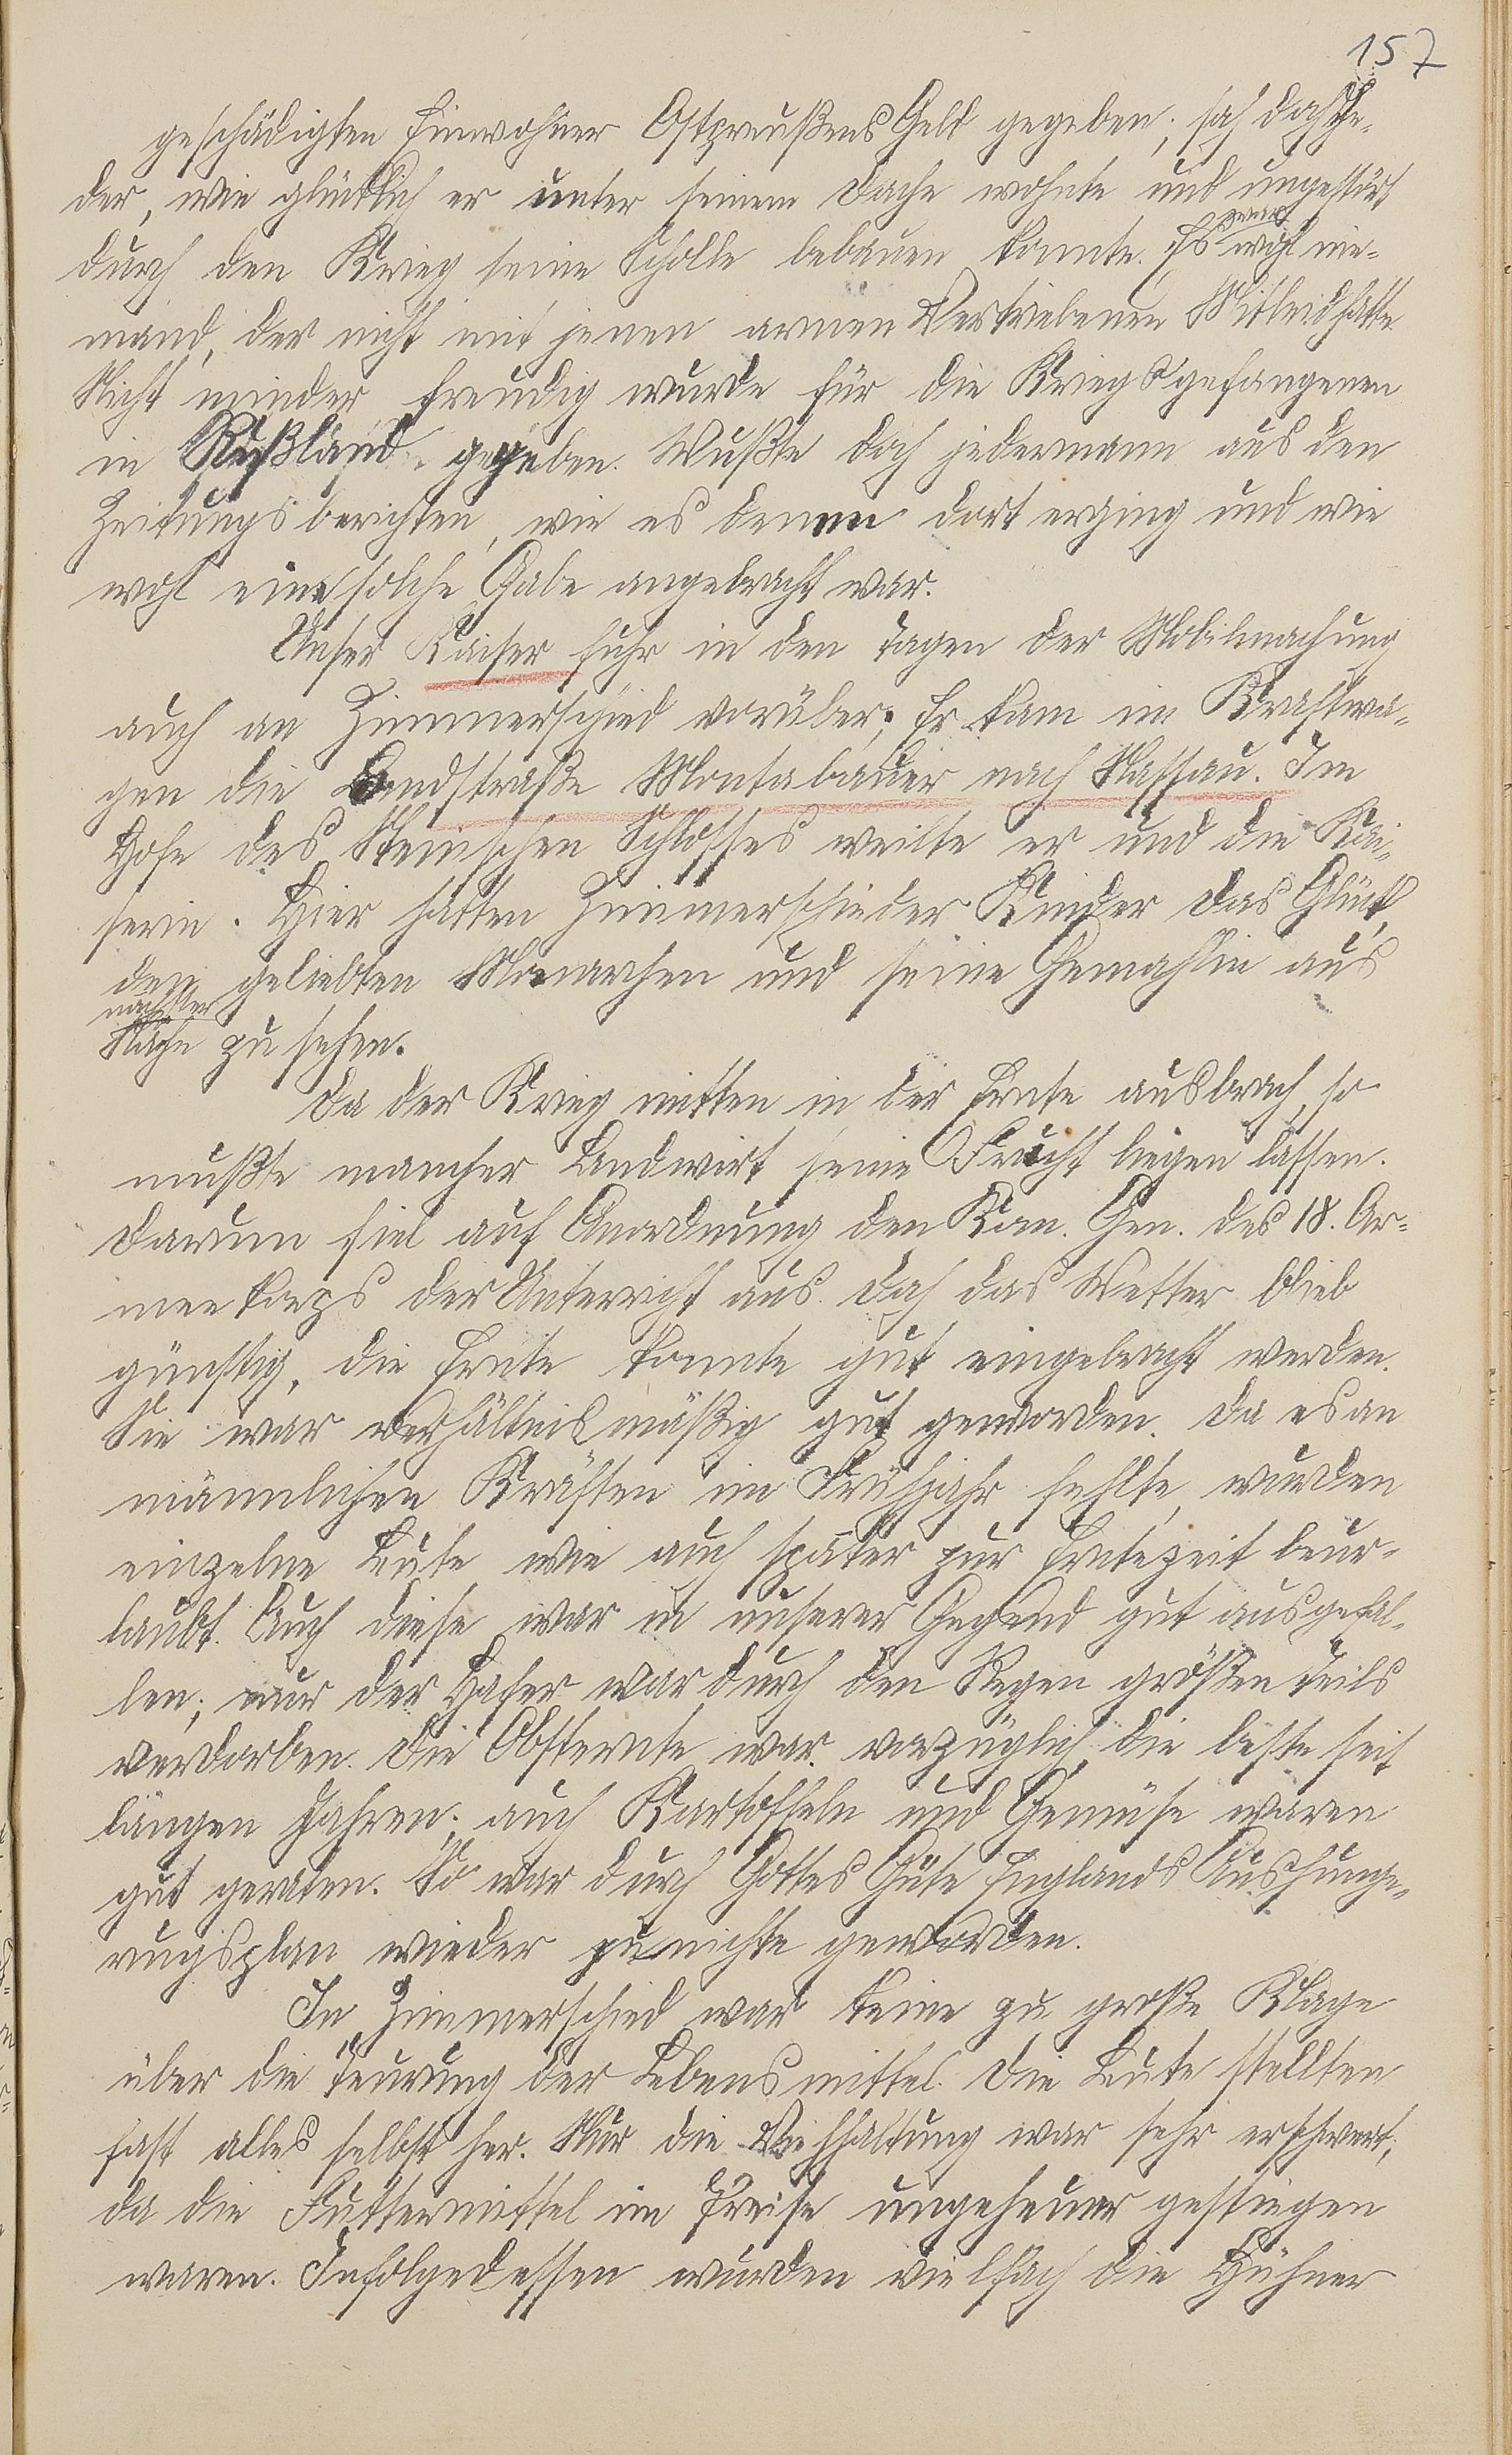 157
geschädigten Einwohner Ostpreußens Geld gegeben; sah doch je-
der, wie glücklich er unter seinem Dache wohnte und ungestört
durch den Krieg seine Scholle bebauen konnte. Es war wohl nie-
mand, der nicht mit jenen armen Vertriebenen Mitleid hatte.
Nicht minder freudig wurde für die Kriegsgefangenen
in Rußland gegeben. Wußte doch jedermann aus den
Zeitungsberichten, wie es denen dort erging und wie
wohl eine solche Gabe angebracht war.
Unser Kaiser fuhr in den Tagen der Mobilmachung
auch an Zimmerschied vorüber; Er kam im Kraftwa-
gen die Landstraße Montabauer nach Nassau. Im
Hofe des Steinschen Schlosses weilte er und die Kai-
serin. Hier hatten Zimmerschieder Kinder das Glück,
den geliebten Monarchen und seine Gemahlin aus
nächster
Nähe zu sehen.
Da der Krieg mitten in der Ernte ausbrach, so
mußte mancher Landwirt seine Frucht liegen lassen.
Darum fiel auf Anordnung den Kom. Gen. des 18. Ar-
meekorps der Unterricht aus. Doch das Wetter blieb
günstig, die Ernte konnte gut eingebracht werden.
Sie war verhältnismäßig gut geworden. Da es an
männlichen Kräften im Frühjahr fehlte, wurden
einzelne Leute wie auch später zur Erntezeit beur-
laubt. Auch diese war in unserer Gegend gut ausgefal-
len; nur der Hafer war durch den Regen größten Teils
verdorben. Die Obsternte war vorzüglich, die beste seit
langen Jahren; auch Kartoffeln und Gemüse waren
gut geraten. So war durch Gottes Güte Englands Aushunge-
rugsplan wieder zu nichte geworden.
In Zimmerschied war keine zu große Klage
über die Teurung der Lebensmittel. Die Leute stellten
fast alles selbst her. Nur die Viehhaltung war sehr erschwert,
da die Futtermittel im Preise ungeheuer gestiegen
waren. Infolgedessen wurden vielfach die Hühner